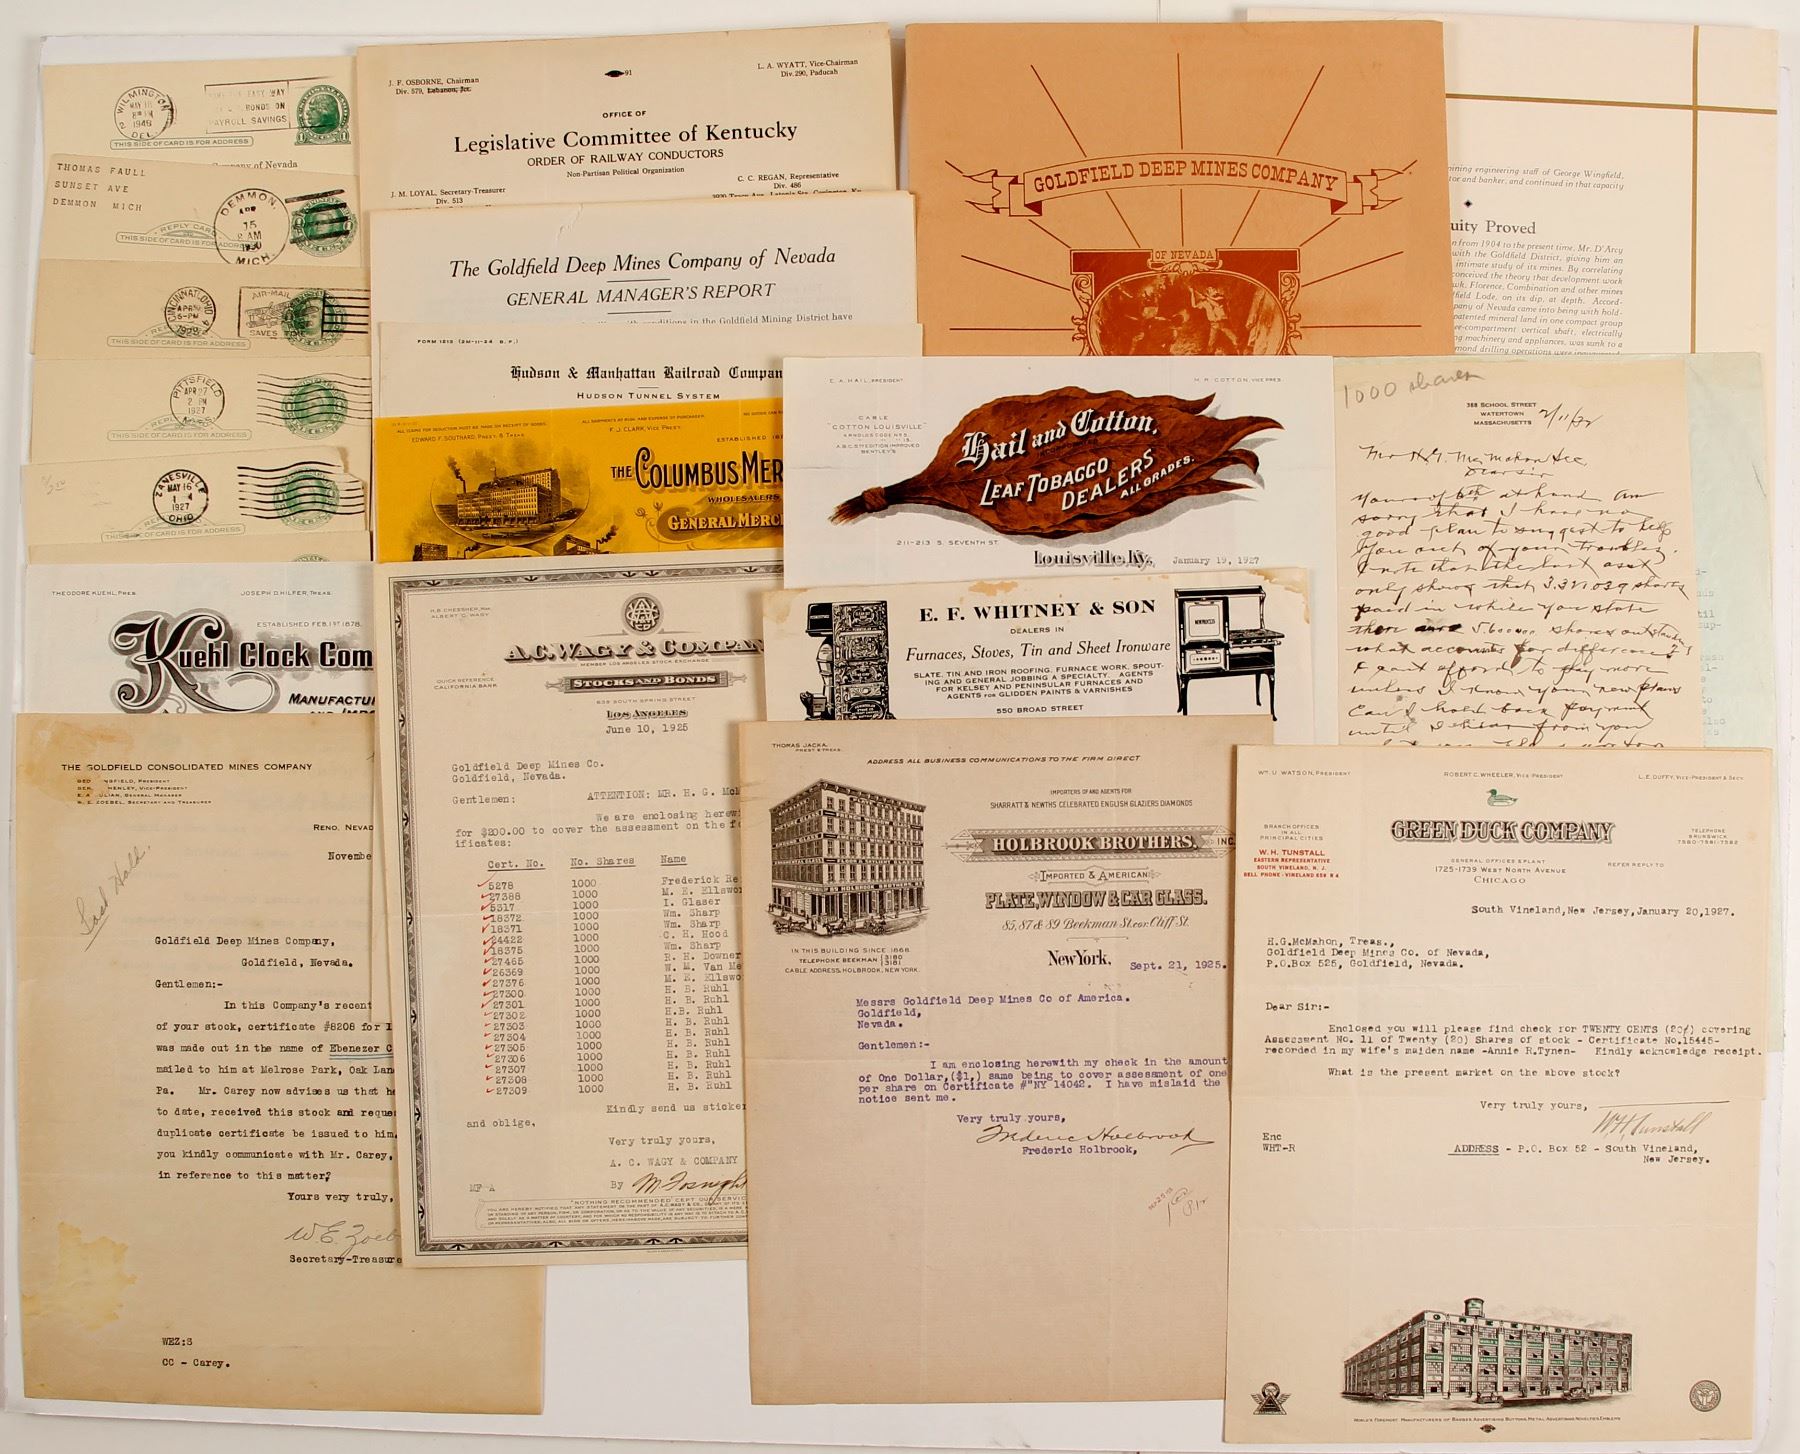 WILMINGTON
MAY 18
1948
2 DEL.
BONDS ON
PAYROLL SAVINGS
THIS SIDE OF CARD IS FOR ADDRESS
Company of Nevada
THOMAS FAULL
SUNSET AVE
DEMMON MICH
DEMMON,
APR
15
8 AM
1930
MICH.
REPLY CARD
THIS SIDE OF CARD IS FOR ADDRESS
CINCINNATI, OHIO
5-PM
AIR-MAIL
SAVES TIME
THIS SIDE OF CARD IS FOR ADDRESS
PITTSFIELD
APR 27
2 PM
1927
MASS.
THIS SIDE OF CARD IS FOR ADDRESS
ZANESVILLE
MAY 16
1927
OHIO
THIS SIDE OF CARD IS FOR ADDRESS
J. F. OSBORNE, Chairman
Div. 579, Lebanon, Jct.
91
L. A. WYATT, Vice-Chairman
Div. 290, Paducah
OFFICE OF
Legislative Committee of Kentucky
ORDER OF RAILWAY CONDUCTORS
Non-Partisan Political Organization
J. M. LOYAL, Secretary-Treasurer
Div. 513
C. C. REGAN, Representative
Div. 486
The Goldfield Deep Mines Company of Nevada
GENERAL MANAGER'S REPORT
conditions in the Goldfield Mining District have
FORM 1213 (2M-11-24 B. P.)
Hudson & Manhattan Railroad Compan
HUDSON TUNNEL SYSTEM
EDWARD F. SOUTHARD, PREST. & TREAS.
ALL SHIPMENTS AT RISK AND EXPENSE OF PURCHASER.
F. J. CLARK, VICE PREST.
ESTABLISHED 18
THE COLUMBUS MER
WHOLESALERS,
GENERAL MERC
GOLDFIELD DEEP MINES COMPANY
OF NEVADA
ining engineering staff of George Wingfield,
tor and banker, and continued in that capacity
uity Proved
n from 1904 to the present time, Mr. D'Arcy
with the Goldfield District, giving him an
intimate study of its mines. By correlating
conceived the theory that development work
wk, Florence, Combination and other mines
field Lode, on its dip, at depth. Accord-
pany of Nevada came into being with hold-
patented mineral land in one compact group
ee-compartment vertical shaft, electrically
ng machinery and appliances, was sunk to a
mond drilling operations were inaugurated
E. A. HAIL, PRESIDENT
H. R. COTTON, VICE PRES.
CABLE
"COTTON LOUISVILLE"
ARNOLDS CODE No 5.
A.B.C. 5TH EDITION IMPROVED
BENTLEY'S
Hail and Cotton,
INCORPORATED
LEAF TOBACCO
DEALERS
ALL GRADES.
211-213 S. SEVENTH ST.
Louisville, Ky., January 19, 1927
1000 shares
388 SCHOOL STREET
WATERTOWN
MASSACHUSETTS
2/11/32
Mr H. G. McMahon Sec
Dear Sir
Yours of 6th at hand Am
sorry that I have no
good plan to suggest to help
you out of your troubles.
I note that the last asst
only shows that 3,321,039 shares
paid in while you state
there are 5,600,000 shares outstanding
what accounts for difference?
I cant afford to pay more
unless I know your new plans
Can I hold back payment
until I hear from you
THEODORE KUEHL, PRES.
JOSEPH D. HILFER, TREAS.
ESTABLISHED FEB. 1ST 1878.
Kuehl Clock Com
MANUFACTU
E. F. WHITNEY & SON
DEALERS IN
Furnaces, Stoves, Tin and Sheet Ironware
SLATE, TIN AND IRON ROOFING, FURNACE WORK, SPOUT-
ING AND GENERAL JOBBING A SPECIALTY. AGENTS
FOR KELSEY AND PENINSULAR FURNACES AND
AGENTS FOR GLIDDEN PAINTS & VARNISHES
550 BROAD STREET
H. B. CHESSHER, MGR.
ALBERT C. WAGY
A.C. WAGY & COMPAN
MEMBER LOS ANGELES STOCK EXCHANGE
STOCKS AND BONDS
QUICK REFERENCE
CALIFORNIA BANK
639 SOUTH SPRING STREET
LOS ANGELES
June 10, 1925
Goldfield Deep Mines Co.
Goldfield, Nevada.
Gentlemen: ATTENTION: MR. H. G. McM
We are enclosing herewi
for $200.00 to cover the assessment on the fo
ificates:
Cert. No. No. Shares Name
5278 1000 Frederick Re
27388 1000 M. E. Ellswo
5317 1000 I. Glaser
18372 1000 Wm. Sharp
18371 1000 Wm. Sharp
24422 1000 C. H. Hood
18375 1000 Wm. Sharp
27465 1000 R. H. Downer
26369 1000 W. M. Van Me
27376 1000 M. E. Ellswo
27300 1000 H. B. Ruhl
27301 1000 H. B. Ruhl
27302 1000 H.B. Ruhl
27303 1000 H. B. Ruhl
27304 1000 H. B. Ruhl
27305 1000 H. B. Ruhl
27306 1000 H. B. Ruhl
27307 1000 H. B. Ruhl
27308 1000 H. B. Ruhl
27309 1000 H. B. Ruhl
Kindly send us sticker
and oblige,
Very truly yours,
A. C. WAGY & COMPANY
By M. Fosnight
MF-A
THE GOLDFIELD CONSOLIDATED MINES COMPANY
GEO. WINGFIELD, PRESIDENT
HENLEY, VICE-PRESIDENT
E. A. JULIAN, GENERAL MANAGER
W. E. ZOEBEL, SECRETARY AND TREASURER
RENO, NEVAD
Novembe
Goldfield Deep Mines Company,
Goldfield, Nevada.
Gentlemen:-
In this Company's recent
of your stock, certificate #8208 for 1
was made out in the name of Ebenezer C
mailed to him at Melrose Park, Oak Lan
Pa. Mr. Carey now advises us that he
to date, received this stock and reque
duplicate certificate be issued to him.
you kindly communicate with Mr. Carey,
in reference to this matter?
Yours very truly,
W. E. Zoeb
Secretary-Treasure
WEZ:S
CC - Carey.
THOMAS JACKA,
PREST & TREAS.
ADDRESS ALL BUSINESS COMMUNICATIONS TO THE FIRM DIRECT
IMPORTERS OF AND AGENTS FOR
SHARRATT & NEWTHS CELEBRATED ENGLISH GLAZIERS DIAMONDS
HOLBROOK BROTHERS, INC
IMPORTED & AMERICAN
PLATE, WINDOW & CAR GLASS.
85, 87 & 89 Beekman St. cor. Cliff St.
IN THIS BUILDING SINCE 1868
TELEPHONE BEEKMAN 3180
3181
CABLE ADDRESS, HOLBROOK, NEW YORK.
New York, Sept. 21, 1925.
Messrs Goldfield Deep Mines Co of America.
Goldfield,
Nevada.
Gentlemen:-
I am enclosing herewith my check in the amount
of One Dollar,($1,) same being to cover assessment of one
per share on Certificate #"NY 14042. I have mislaid the
notice sent me.
Very truly yours,
Frederic Holbrook
Frederic Holbrook,
WM. U WATSON, PRESIDENT
ROBERT C. WHEELER, VICE-PRESIDENT
L. E. DUFFY, VICE-PRESIDENT & SECY.
BRANCH OFFICES
IN ALL
PRINCIPAL CITIES
W. H. TUNSTALL
EASTERN REPRESENTATIVE
SOUTH VINELAND, N. J.
BELL PHONE - VINELAND 659 R 4
GREEN DUCK COMPANY
GENERAL OFFICES & PLANT
1725-1739 WEST NORTH AVENUE
CHICAGO
TELEPHONE
BRUNSWICK
7580-7581-7582
REFER REPLY TO
South Vineland, New Jersey, January 20, 1927.
H.G.McMahon, Treas.,
Goldfield Deep Mines Co. of Nevada,
P.O.Box 525, Goldfield, Nevada.
Dear Sir:-
Enclosed you will please find check for TWENTY CENTS (20¢) covering
Assessment No. 11 of Twenty (20) Shares of stock - Certificate No.15445-
recorded in my wife's maiden name -Annie R.Tynen- Kindly acknowledge receipt.
What is the present market on the above stock?
Very truly yours,
W.H.Tunstall
Enc
WHT-R
ADDRESS - P.O. Box 52 - South Vineland,
New Jersey.
GREEN DUCK
WORLD'S FOREMOST MANUFACTURERS OF BADGES, ADVERTISING BUTTONS, METAL ADVERTISING NOVELTIES, EMBLEMS